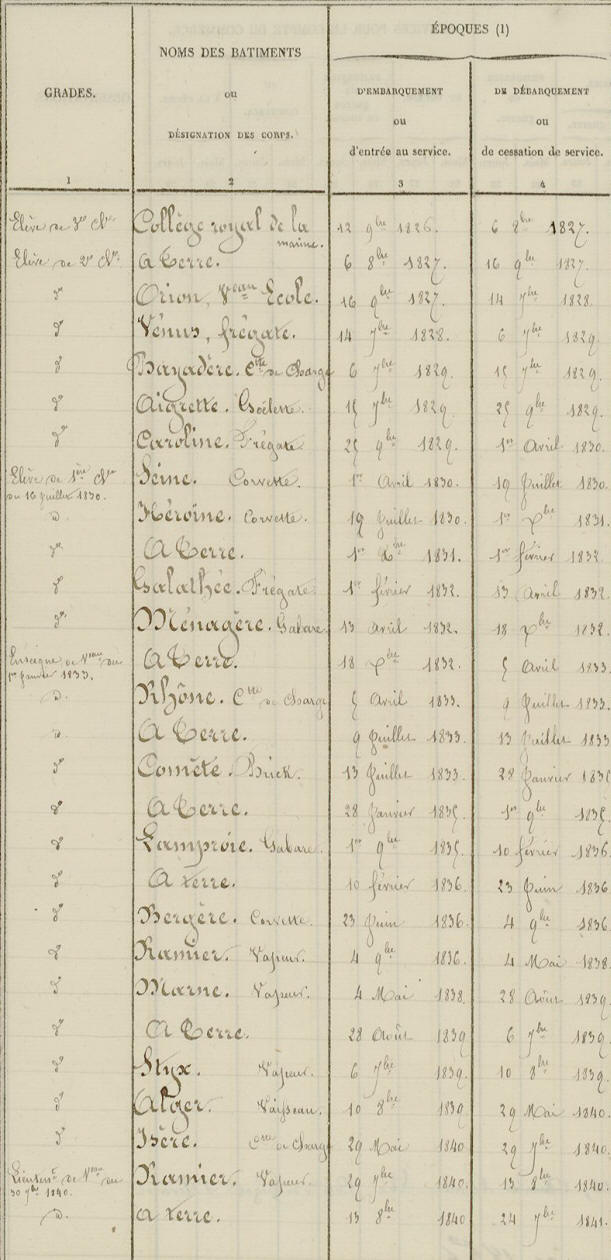 ÉPOQUES (1)
GRADES.
NOMS DES BATIMENTS
ou
DÉSIGNATION DES CORPS.
D'EMBARQUEMENT
ou
d'entrée au service.
DE DÉBARQUEMENT
ou
de cessation de service.
1 2 3 4
Elève de 3e Cl. Collège royal de la marine. 12 9bre 1826. 6 8bre 1827.
Elève de 2e Cl. A Terre. 6 8bre 1827. 16 9bre 1827.
do Orion, Veau Ecole. 16 9bre 1827. 14 7bre 1828.
do Vénus, frégate. 14 7bre 1828. 6 7bre 1829.
do Bayadère. Ctte de Charge 6 7bre 1829. 15 7bre 1829.
do Aigrette. Goëlette. 15 7bre 1829. 25 9bre 1829.
do Caroline. Frégate. 25 9bre 1829. 1er Avril 1830.
Elève de 1ère Cl. du 16 Juillet 1830. Seine. Corvette. 1er Avril 1830. 19 Juillet 1830.
do Héroïne. Corvette. 19 Juillet 1830. 1er Xbre 1831.
do A Terre. 1er Xbre 1831. 1er février 1832.
do Galathée. Frégate. 1er février 1832. 13 avril 1832.
do Ménagère. Gabare. 13 avril 1832. 18 Xbre 1832.
Enseigne de Veau du 1er Janvier 1833. A Terre. 18 Xbre 1832. 5 Avril 1833.
do Rhône. Ctte de Charge 5 Avril 1833. 9 Juillet 1833.
do A Terre. 9 Juillet 1833. 13 Juillet 1833
do Comète. Brick. 13 Juillet 1833. 28 Janvier 1835
do A Terre. 28 Janvier 1835. 1er 9bre 1835.
do Lamproie. Gabare. 1er 9bre 1835. 10 février 1836.
do A terre. 10 février 1836. 23 Juin 1836
do Bergère. Corvette. 23 Juin 1836. 4 9bre 1836
do Ramier. Vapeur. 4 9bre 1836. 4 Mai 1838.
do Marne. Vapeur. 4 Mai 1838. 28 Août 1839
do A Terre. 28 Août 1839 6 7bre 1839.
do Styx. Vapeur. 6 7bre 1839. 10 8bre 1839.
do Alger. Vaisseau. 10 8bre 1839 29 Mai 1840.
do Isère. Ctte de Charge 29 Mai 1840 29 7bre 1840.
Lieutent de Veau du 30 7bre 1840. Ramier. Vapeur. 29 7bre 1840. 13 8bre 1840.
do A terre. 13 8bre 1840 24 7bre 1841.